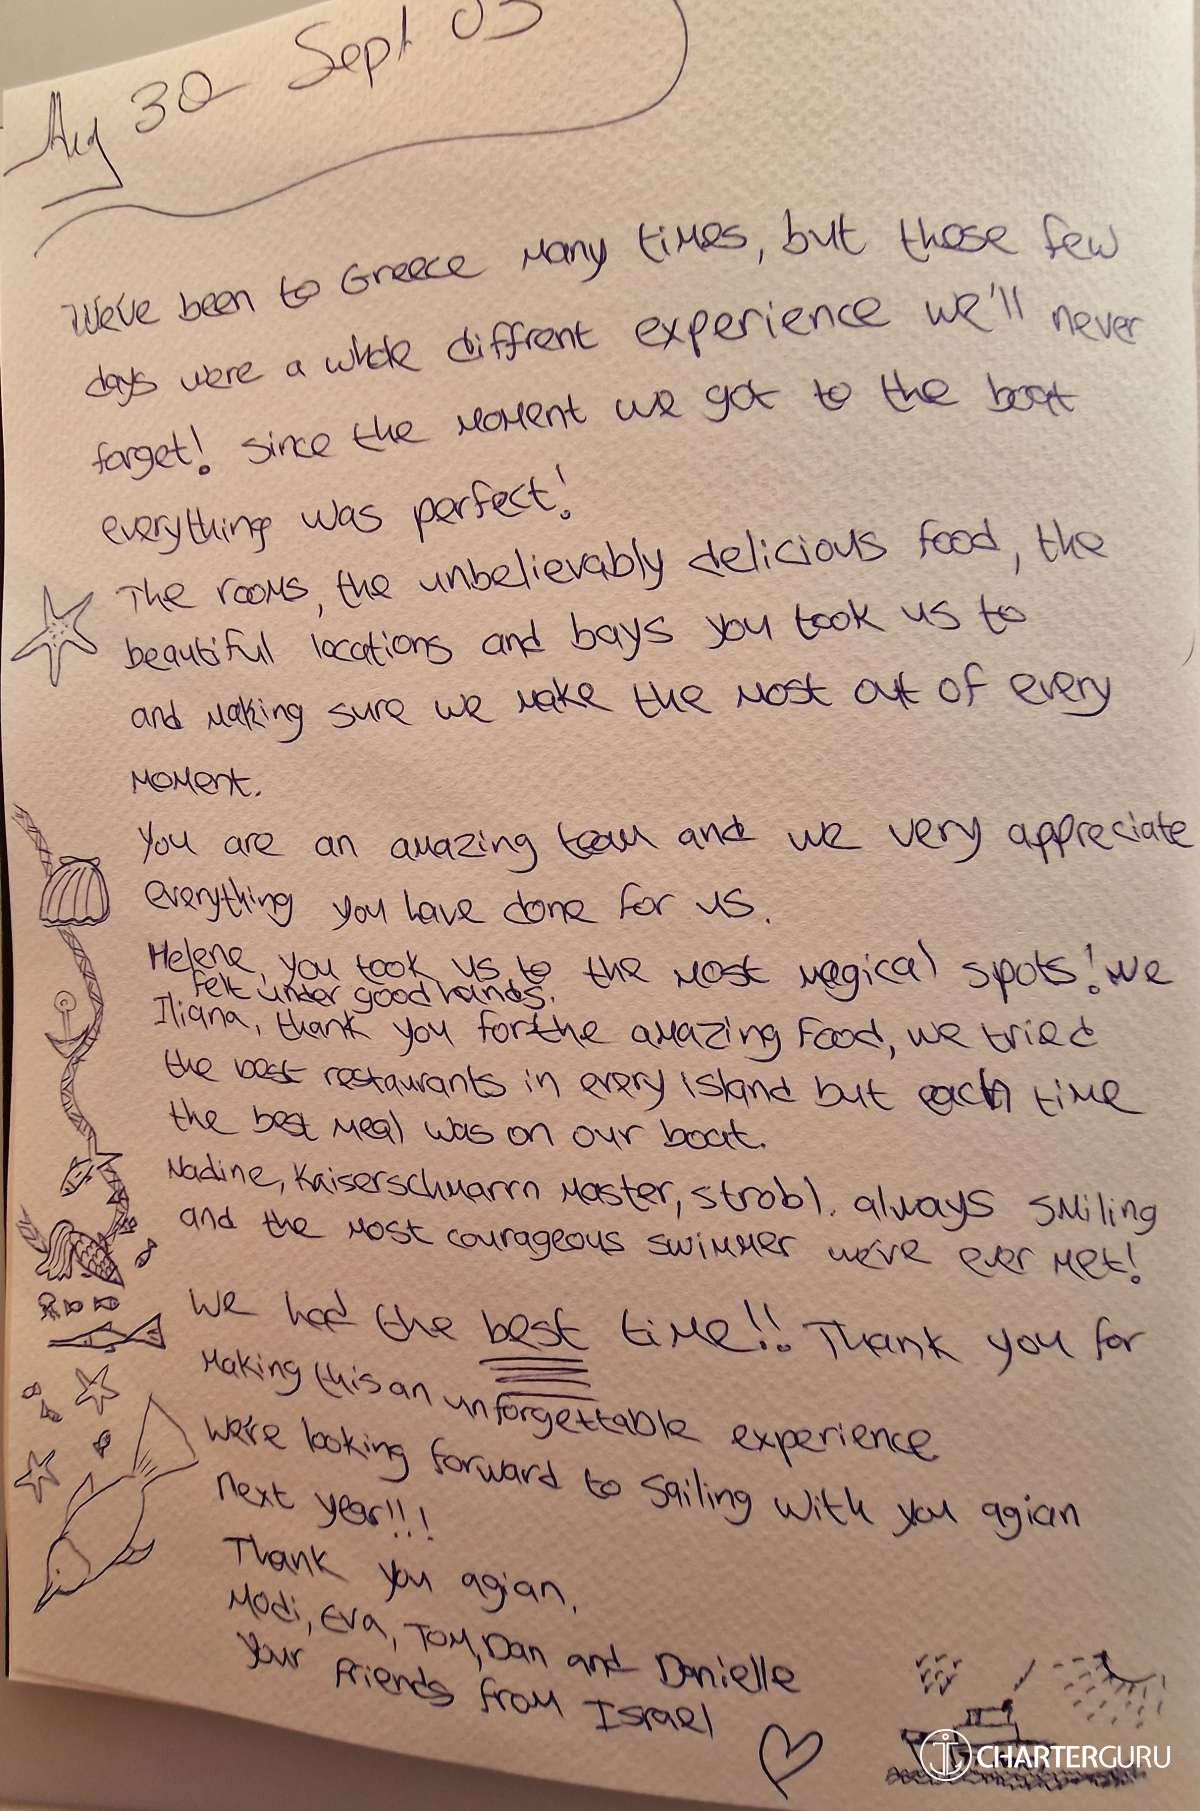 Aug 30 - Sept 03
We've been to Greece many times, but those few
days were a whole diffrent experience we'll never
forget! since the moment we got to the boat
everything was perfect!
The rooms, the unbelievably delicious food, the
beautiful locations and bays you took us to
and making sure we make the most out of every
moment.
You are an amazing team and we very appreciate
everything you have done for us.
Helene, you took us to the most magical spots! We
felt under good hands.
Iliana, thank you for the amazing food, we tried
the best restaurants in every island but each time
the best meal was on our boat.
Nadine, Kaiserschmarrn master, strobl. always smiling
and the most courageous swimmer we've ever met!
We had the best time!! Thank you for
making this an unforgettable experience
We're looking forward to sailing with you agian
next year!!!
Thank you agian,
Modi, Eva, Tom, Dan and Danielle
Your friends from Israel
CHARTERGURU